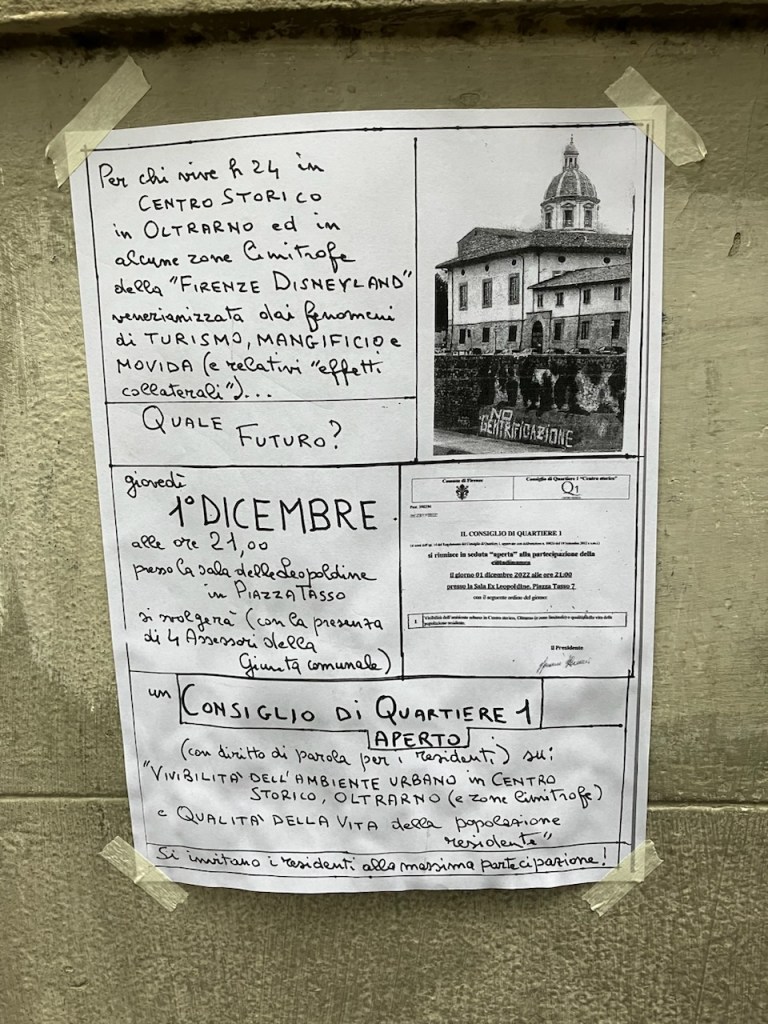 Per chi vive h 24 in
CENTRO STORICO
in OLTRARNO ed in
alcune zone limitrofe
della "FIRENZE DISNEYLAND"
venezianizzata dai fenomeni
di TURISMO, MANGIFICIO e
MOVIDA (e relativi "effetti
collaterali")...
QUALE FUTURO?
NO
GENTRIFICAZIONE
giovedì
1° DICEMBRE
alle ore 21,00
presso la sala delle Leopoldine
in PIAZZA TASSO
si svolgerà (con la presenza
di 4 Assessori della
Giunta comunale)
Comune di Firenze
Consiglio di Quartiere 1 "Centro storico"
Q1
IL CONSIGLIO DI QUARTIERE 1
si riunisce in seduta "aperta" alla partecipazione della
cittadinanza
il giorno 01 dicembre 2022 alle ore 21:00
presso la Sala Ex Leopoldine, Piazza Tasso 7
con il seguente ordine del giorno:
1
popolazione residente.
Il Presidente
un CONSIGLIO DI QUARTIERE 1
APERTO
(con diritto di parola per i residenti) su:
"VIVIBILITÀ DELL'AMBIENTE URBANO in CENTRO
STORICO, OLTRARNO (e zone limitrofe)
e QUALITÀ DELLA VITA della popolazione
residente"
Si invitano i residenti alla massima partecipazione!